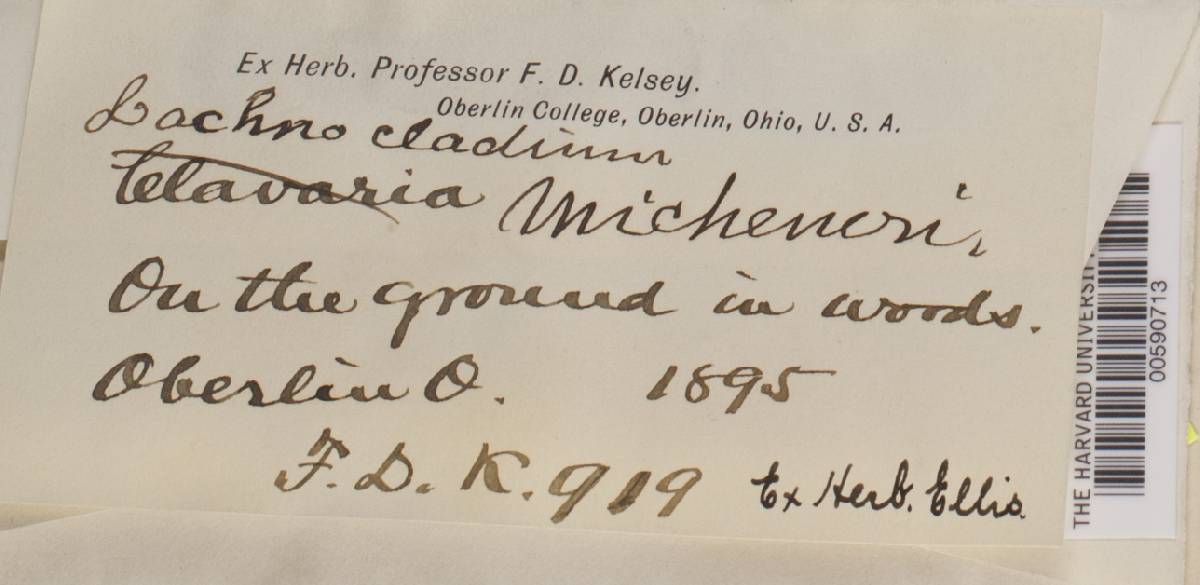 Ex Herb. Professor F. D. Kelsey.
Oberlin College, Oberlin, Ohio, U. S. A.
Lachnocladium
Clavaria Micheneri,
On the ground in woods.
Oberlin O. 1895
F. D. K. 919 Ex Herb. Ellis.
THE HARVARD UNIVERSI
00590713